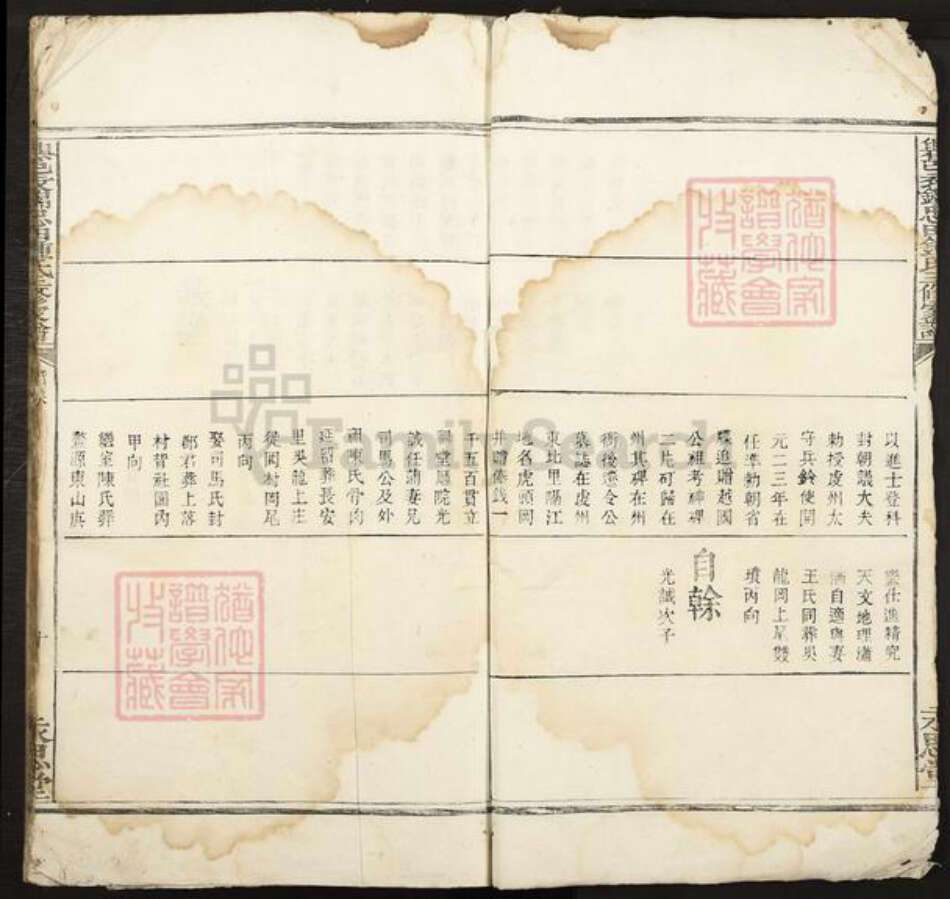 以進士登科
封朝議大夫
勅授虔州太
守兵鈐使開
元二三年在
任準勅朝省
驟進贈越國
公祖考神碑
二片可歸在
州其碑在州
衙後遷令公
墓誌在虔州
東北里陽江
地名虎頭岡
并贈俸錢一
千五百貫立
誠任蒲妻兄
司馬公及外
祖陳氏骨肉
廷韶葬長安
里吳龍上庄
從岡村岡尾
丙向
娶司馬氏封
郡君葬上落
村背社圖內
甲向
繼室陳氏葬
藍源東山庚
樂仕進精究
天文地理瀟
洒自適與妻
王氏同葬吳
龍岡上星雙
墳丙向
自榦
光誠次子
猶他家
譜學會
收藏
猶他家
譜學會
收藏
FamilySearch